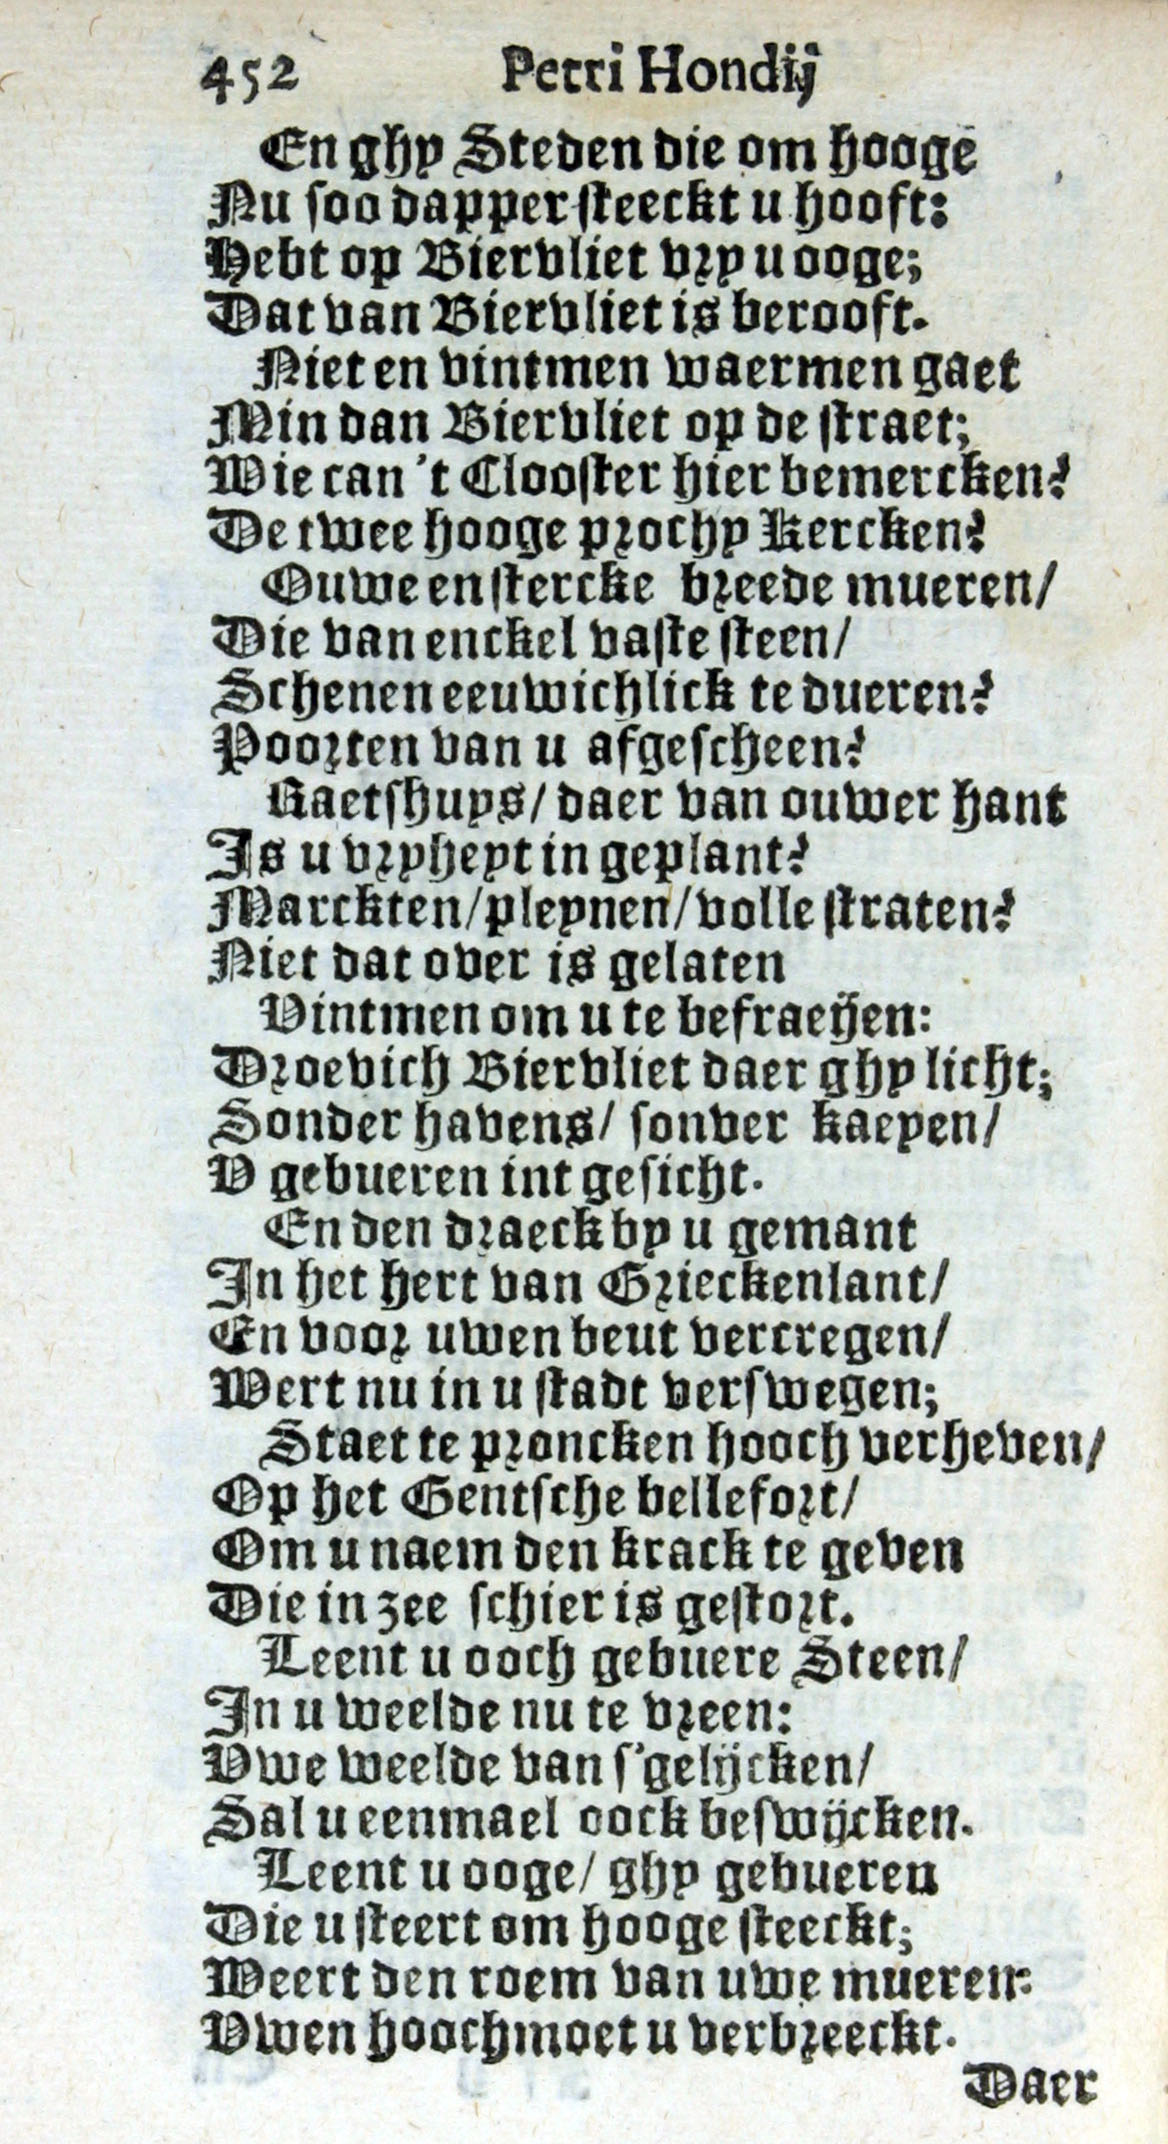 452 Petri Hondij
En ghy Steden die om hooge
Nu soo dapper steeckt u hooft:
Hebt op Biervliet vry u ooge;
Dat van Biervliet is berooft.
Niet en vintmen waermen gaet
Min dan Biervliet op de straet;
Wie can 't Clooster hier bemercken?
De twee hooge prochy Kercken?
Ouwe en stercke breede mueren/
Die van enckel vaste steen/
Schenen eeuwichlick te dueren?
Poorten van u afgescheen?
Raetshuys/ daer van ouwer hant
Is u vryheyt in geplant?
Marckten/ pleynen/ volle straten?
Niet dat over is gelaten
Vintmen om u te befraeijen:
Droevich Biervliet daer ghy licht;
Sonder havens/ sonder kaeyen/
V gebueren int gesicht.
En den draeck by u gemant
In het hert van Grieckenlant/
En voor uwen beut vercregen/
Wert nu in u stadt verswegen;
Staet te proncken hooch verheven/
Op het Gentsche bellefort/
Om u naem den krack te geven
Die in zee schier is gestort.
Leent u ooch gebuere Steen/
In u weelde nu te vreen:
Vwe weelde van s'gelijcken/
Sal u eenmael oock beswijcken.
Leent u ooge/ ghy gebueren
Die u steert om hooge steeckt;
Weert den roem van uwe mueren:
Vwen hoochmoet u verbreeckt.
Daer